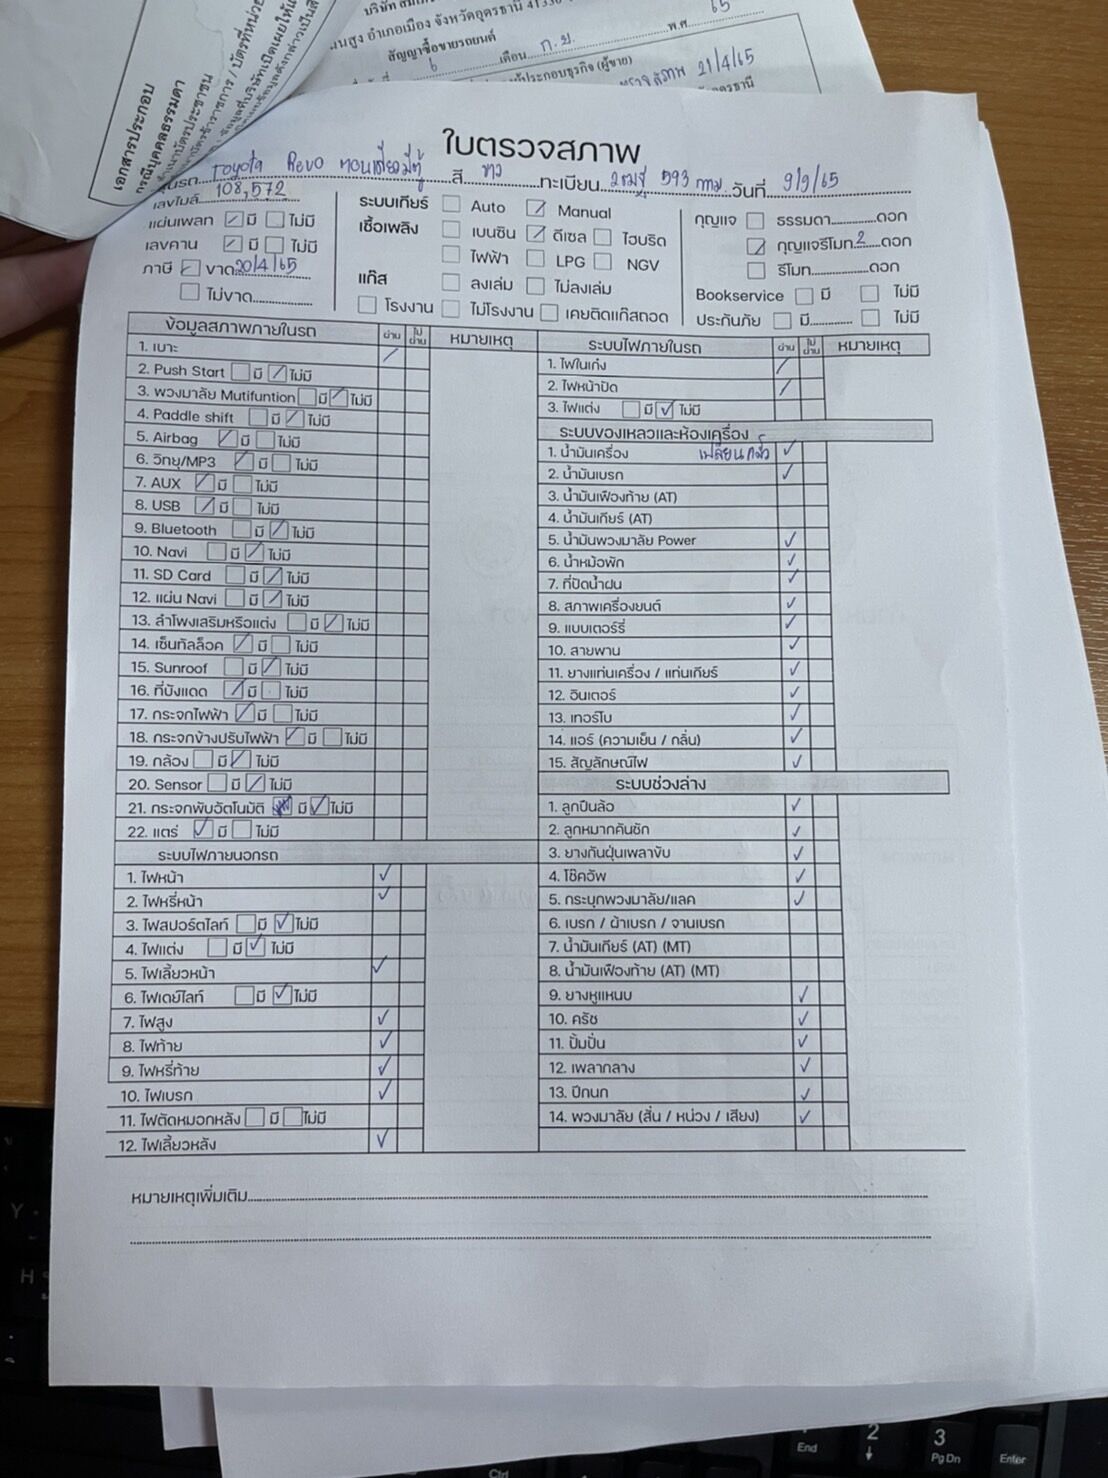 เอกสารประกอบ
กรณีบุคคลธรรมดา
สัญญาซื้อขายรถยนต์
6 เดือน ก.ย. พ.ศ. 65
21/4/65
ใบตรวจสภาพ
Toyota Revo ตอนเดียวมีตู้ สี ขาว ทะเบียน 593 กทม วันที่ 9/9/65
เลขไมล์ 108,572
แผ่นเพลท มี ไม่มี
เลขคาน มี ไม่มี
ภาษี ขาด 20/4/65
ไม่ขาด
ระบบเกียร์ Auto Manual
เชื้อเพลิง เบนซิน ดีเซล ไฮบริด
ไฟฟ้า LPG NGV
แก๊ส ลงเล่ม ไม่ลงเล่ม
โรงงาน ไม่โรงงาน เคยติดแก๊สถอด
กุญแจ ธรรมดา ดอก
กุญแจรีโมท 2 ดอก
รีโมท ดอก
Bookservice มี ไม่มี
ประกันภัย มี ไม่มี
ข้อมูลสภาพภายในรถ ผ่าน ไม่ผ่าน หมายเหตุ
1. เบาะ
2. Push Start มี ไม่มี
3. พวงมาลัย Mutifuntion มี ไม่มี
4. Paddle shift มี ไม่มี
5. Airbag มี ไม่มี
6. วิทยุ/MP3 มี ไม่มี
7. AUX มี ไม่มี
8. USB มี ไม่มี
9. Bluetooth มี ไม่มี
10. Navi มี ไม่มี
11. SD Card มี ไม่มี
12. แผ่น Navi มี ไม่มี
13. ลำโพงเสริมหรือแต่ง มี ไม่มี
14. เซ็นทัลล็อค มี ไม่มี
15. Sunroof มี ไม่มี
16. ที่บังแดด มี ไม่มี
17. กระจกไฟฟ้า มี ไม่มี
18. กระจกข้างปรับไฟฟ้า มี ไม่มี
19. กล้อง มี ไม่มี
20. Sensor มี ไม่มี
21. กระจกพับอัตโนมัติ มี ไม่มี
22. แตร่ มี ไม่มี
ระบบไฟภายนอกรถ
1. ไฟหน้า
2. ไฟหรี่หน้า
3. ไฟสปอร์ตไลท์ มี ไม่มี
4. ไฟแต่ง มี ไม่มี
5. ไฟเลี้ยวหน้า
6. ไฟเดย์ไลท์ มี ไม่มี
7. ไฟสูง
8. ไฟท้าย
9. ไฟหรี่ท้าย
10. ไฟเบรก
11. ไฟตัดหมอกหลัง มี ไม่มี
12. ไฟเลี้ยวหลัง
ระบบไฟภายในรถ ผ่าน ไม่ผ่าน หมายเหตุ
1. ไฟในเก๋ง
2. ไฟหน้าปัด
3. ไฟแต่ง มี ไม่มี
ระบบของเหลวและห้องเครื่อง
1. น้ำมันเครื่อง เปลี่ยนแล้ว
2. น้ำมันเบรก
3. น้ำมันเฟืองท้าย (AT)
4. น้ำมันเกียร์ (AT)
5. น้ำมันพวงมาลัย Power
6. น้ำหม้อพัก
7. ที่ปัดน้ำฝน
8. สภาพเครื่องยนต์
9. แบบเตอร์รี่
10. สายพาน
11. ยางแท่นเครื่อง / แท่นเกียร์
12. อินเตอร์
13. เทอร์โบ
14. แอร์ (ความเย็น / กลิ่น)
15. สัญลักษณ์ไฟ
ระบบช่วงล่าง
1. ลูกปืนล้อ
2. ลูกหมากคันชัก
3. ยางกันฝุ่นเพลาขับ
4. โช๊คอัพ
5. กระบุกพวงมาลัย/แลค
6. เบรก / ผ้าเบรก / จานเบรก
7. น้ำมันเกียร์ (AT) (MT)
8. น้ำมันเฟืองท้าย (AT) (MT)
9. ยางหูแหนบ
10. ครัช
11. ปั้มปั่น
12. เพลากลาง
13. ปีกนก
14. พวงมาลัย (สั่น / หน่วง / เสียง)
หมายเหตุเพิ่มเติม
Y
H
End
2
3
PgDn
Enter
Ctrl